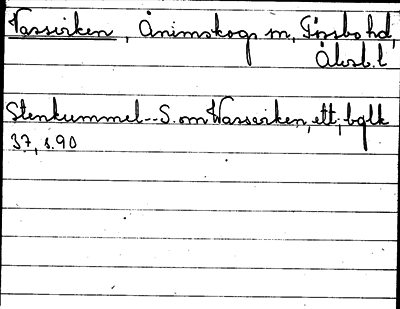 Vassviken, Ånimskogs sn, Tössbo hd,
Älvsb. l
Stenkummel -- S. om Wassviken, ett; bglk
37, s. 90